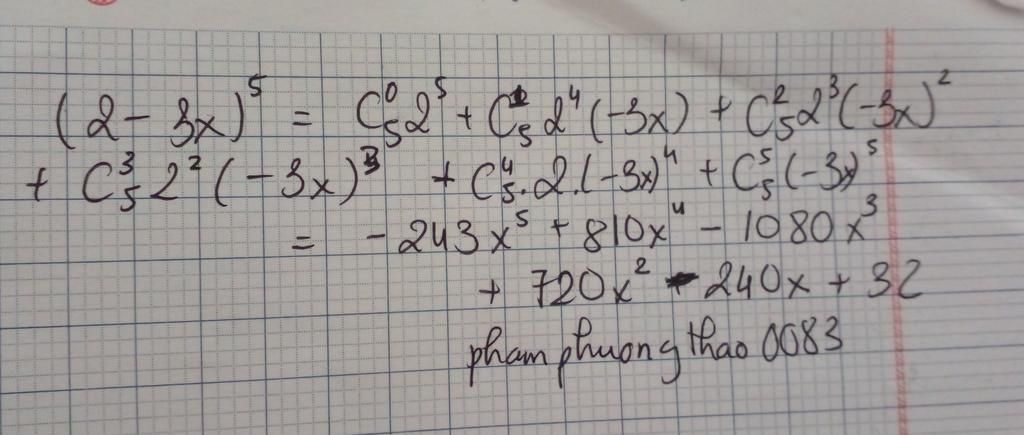 (2 - 3x)⁵ = C₅⁰2⁵ + C₅¹2⁴(-3x) + C₅²2³(-3x)²
+ C₅³2²(-3x)³ + C₅⁴.2.(-3x)⁴ + C₅⁵(-3x)⁵
= -243x⁵ + 810x⁴ - 1080x³
+ 720x² - 240x + 32
pham phuong thao 0083